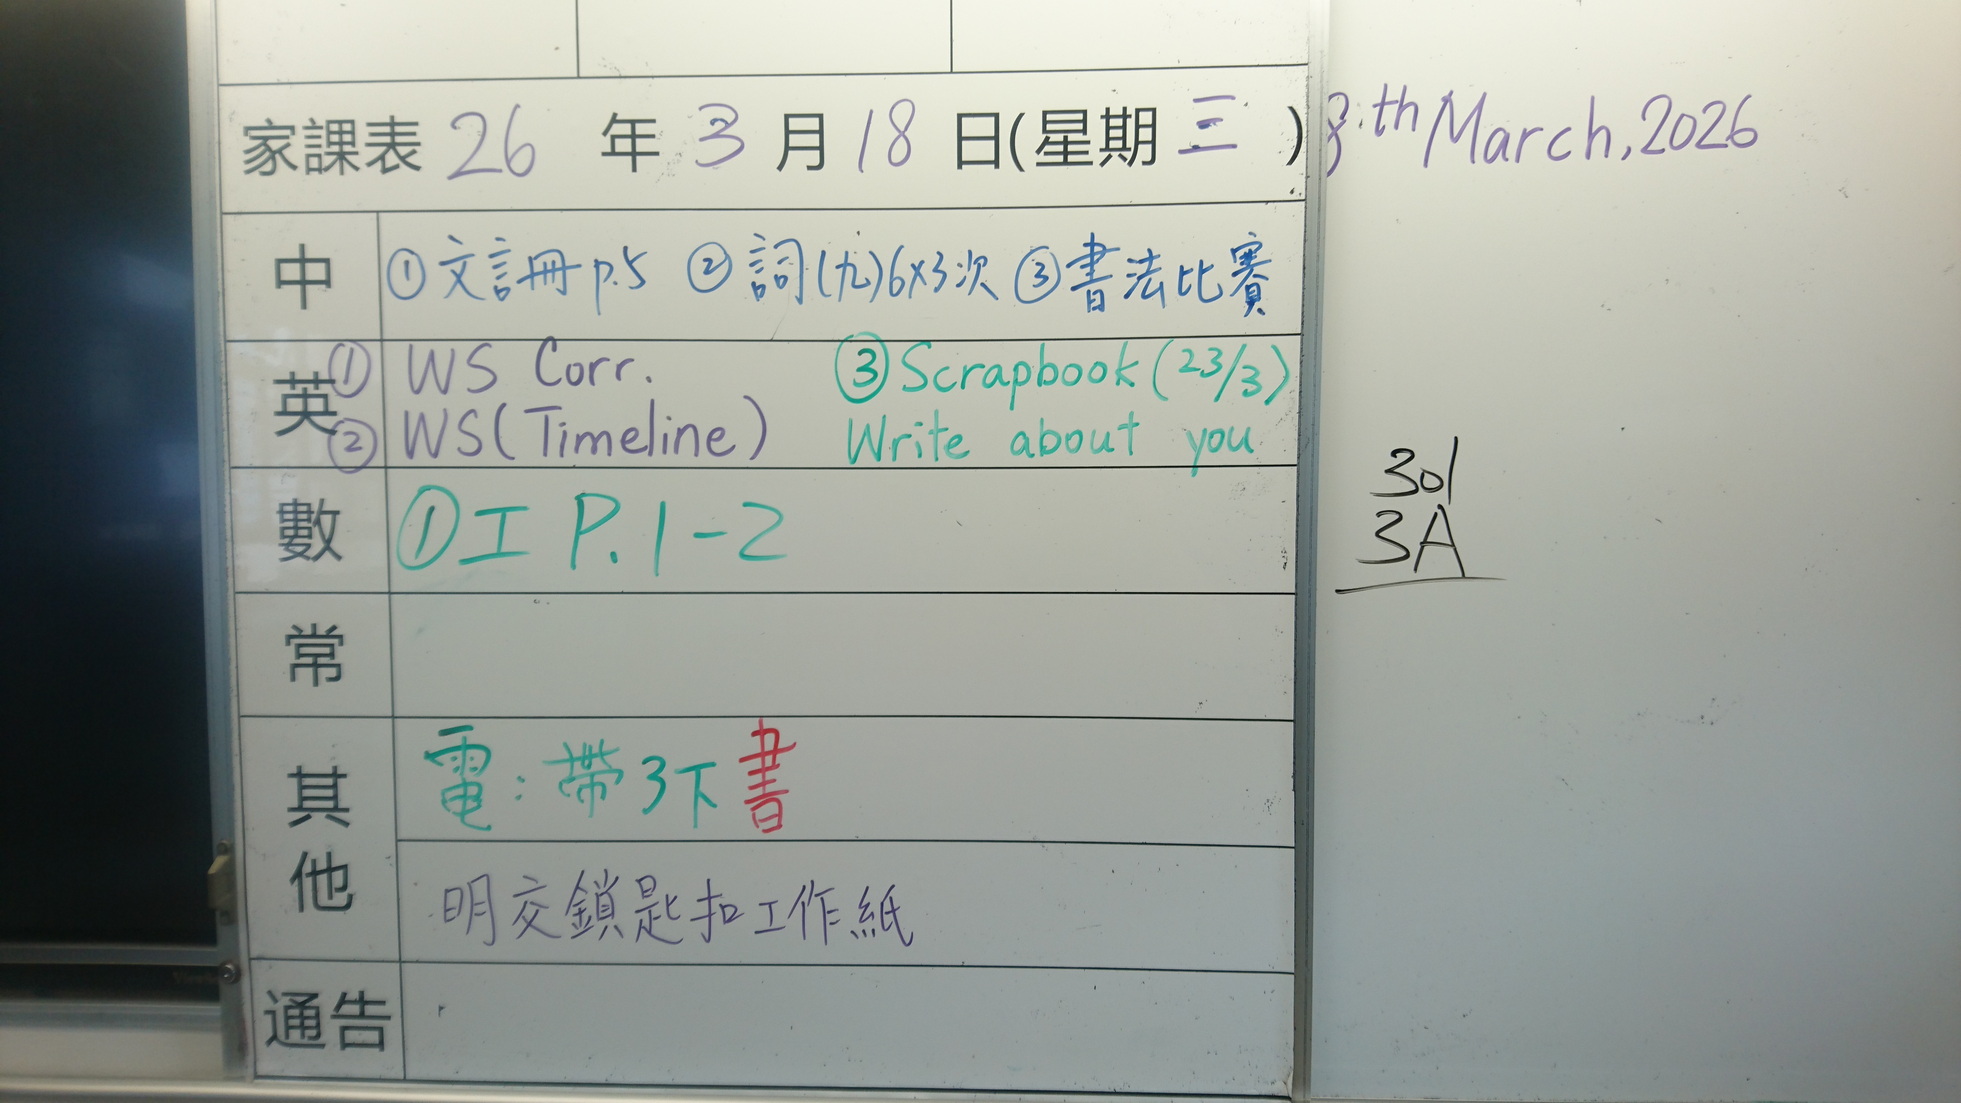 家課表 26 年 3 月 18 日(星期 三 )
8th March, 2026
中 ①文詞冊 p.5 ②詞(九)6x3次 ③書法比賽
英 ① WS Corr. ③ Scrapbook (23/3)
② WS (Timeline) Write about you
301
3A
數 ①工 P.1-2
常
其他 電:帶3下書
明交鎖匙扣工作紙
通告